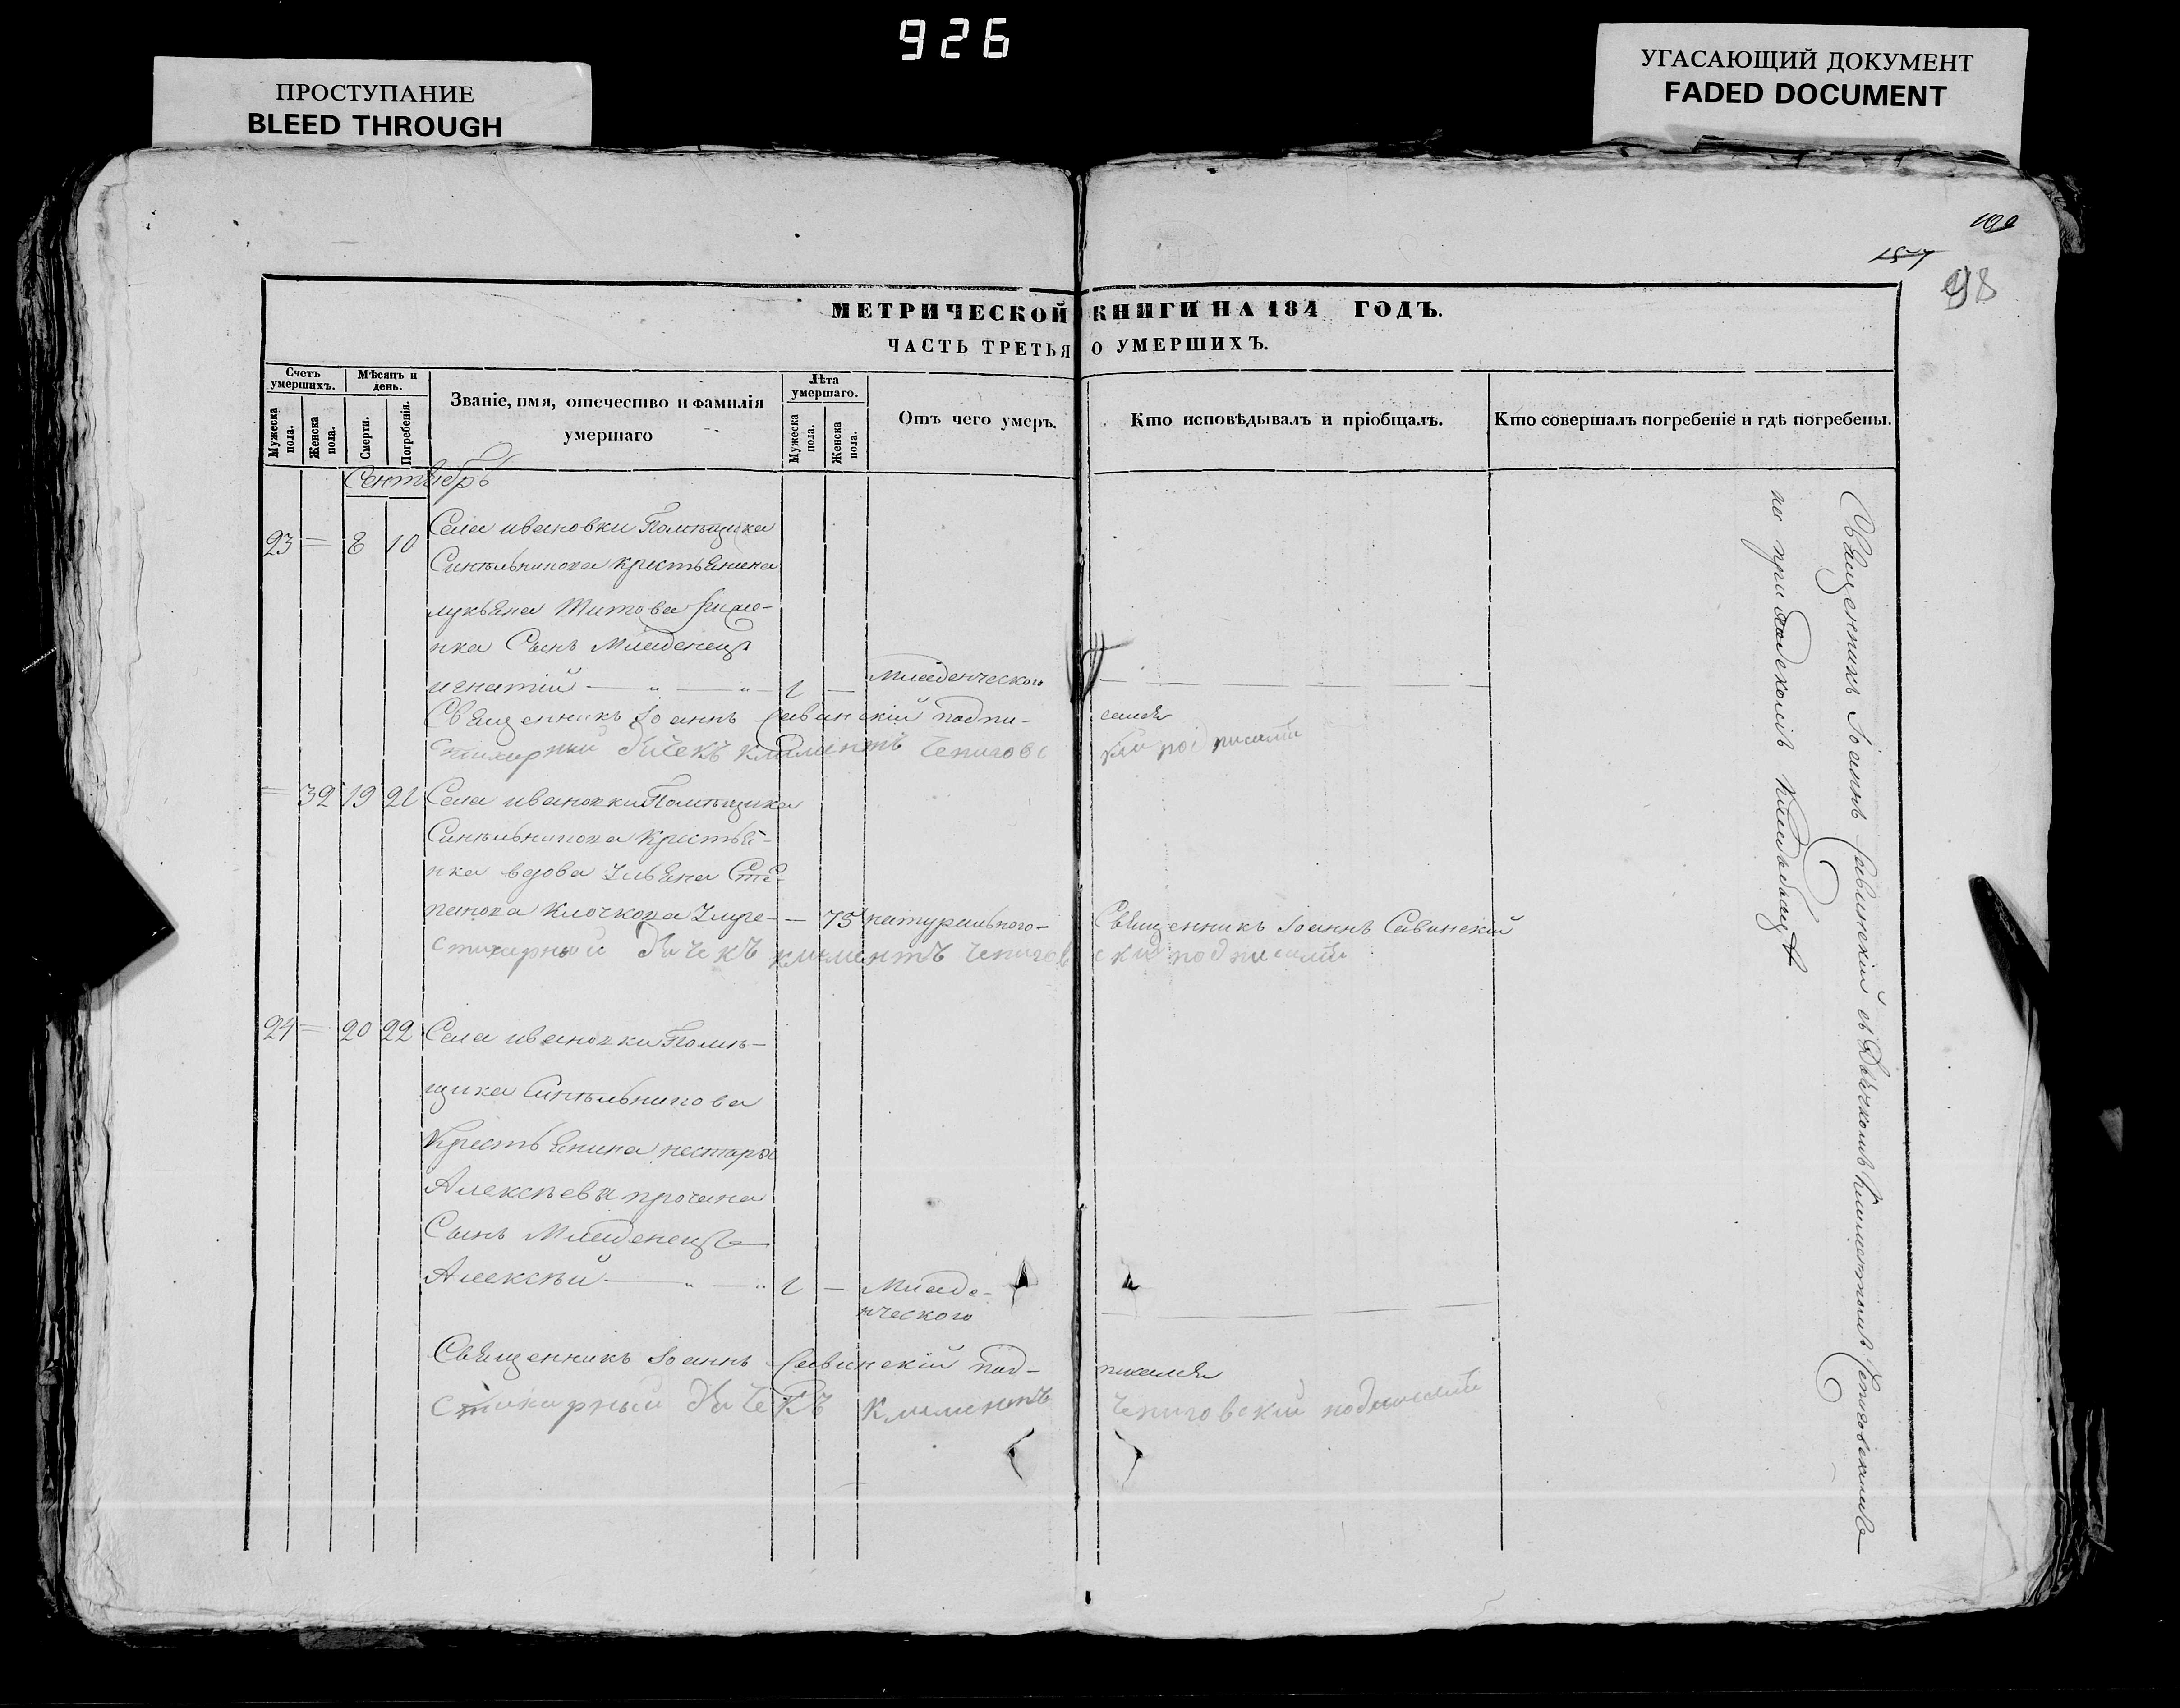 926
ПРОСТУПАНИЕ
BLEED THROUGH
УГАСАЮЩИЙ ДОКУМЕНТ
FADED DOCUMENT
157
98
МЕТРИЧЕСКОЙ КНИГИ НА 184 ГОДЪ.
ЧАСТЬ ТРЕТЬЯ О УМЕРШИХЪ.
Счетъ умершихъ.
Мѣсяцъ и день.
Званіе, имя, отечество и фамилія умершаго
Лѣта умершаго.
Отъ чего умеръ.
Кто исповѣдывалъ и пріобщалъ.
Кто совершалъ погребеніе и гдѣ погребены.
Мужеска пола.
Женска пола.
Смерти.
Погребенія.
Мужеска пола.
Женска пола.
Сентябрь
23 = 8 10 Села ивановки Помѣщика
Синѣльникова крестьянина
лукьяна Титова
нка Сынъ Младенецъ
игнатій — „ — „ — 1 — Младенческого
Священникъ Іоаннъ Савинскій подписался
Стихарный дячекъ климентъ Чепиговскій подписалъ
= 32 19 21 Села ивановки Помѣщика
Синѣльникова Крестья-
нка вдова Ульяна Сте-
панова Клочкова Умре- — 75 натурального — Священникъ Іоаннъ Савинскій
Стихарный дячекъ климентъ Чепиговский подписалъ
24 = 20 22 Села ивановки Помѣ-
щика Синѣльникова
Крестьянина нестора
Алексѣева
Сынъ Младенецъ
Алексѣй — „ — „ 1 — Младе-
нческого
Священникъ Іоаннъ Савинскій подписался
Стихарный дячекъ Климентъ Чепиговский подписалъ
Священникъ Іоаннъ Савинскій съ Дьячкомъ Климентомъ Чепиговскимъ
на приходскомъ Кладбищѣ